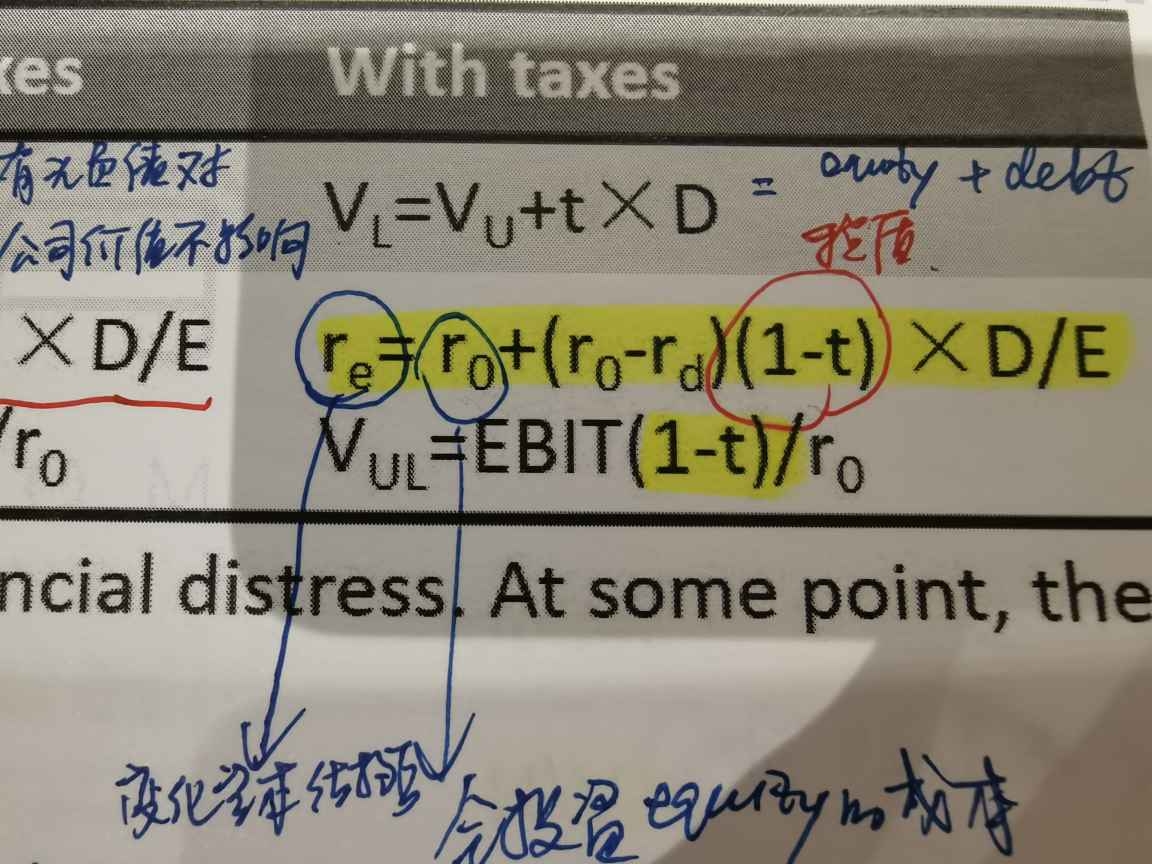 xes With taxes
有无负债对
公司价值不影响
V_L=V_U+t×D = equity + debt
×D/E r_e=r_0+(r_0-r_d)(1-t)×D/E
/r_0 V_UL=EBIT(1-t)/r_0
ncial distress. At some point, the
变化资本结构
equity